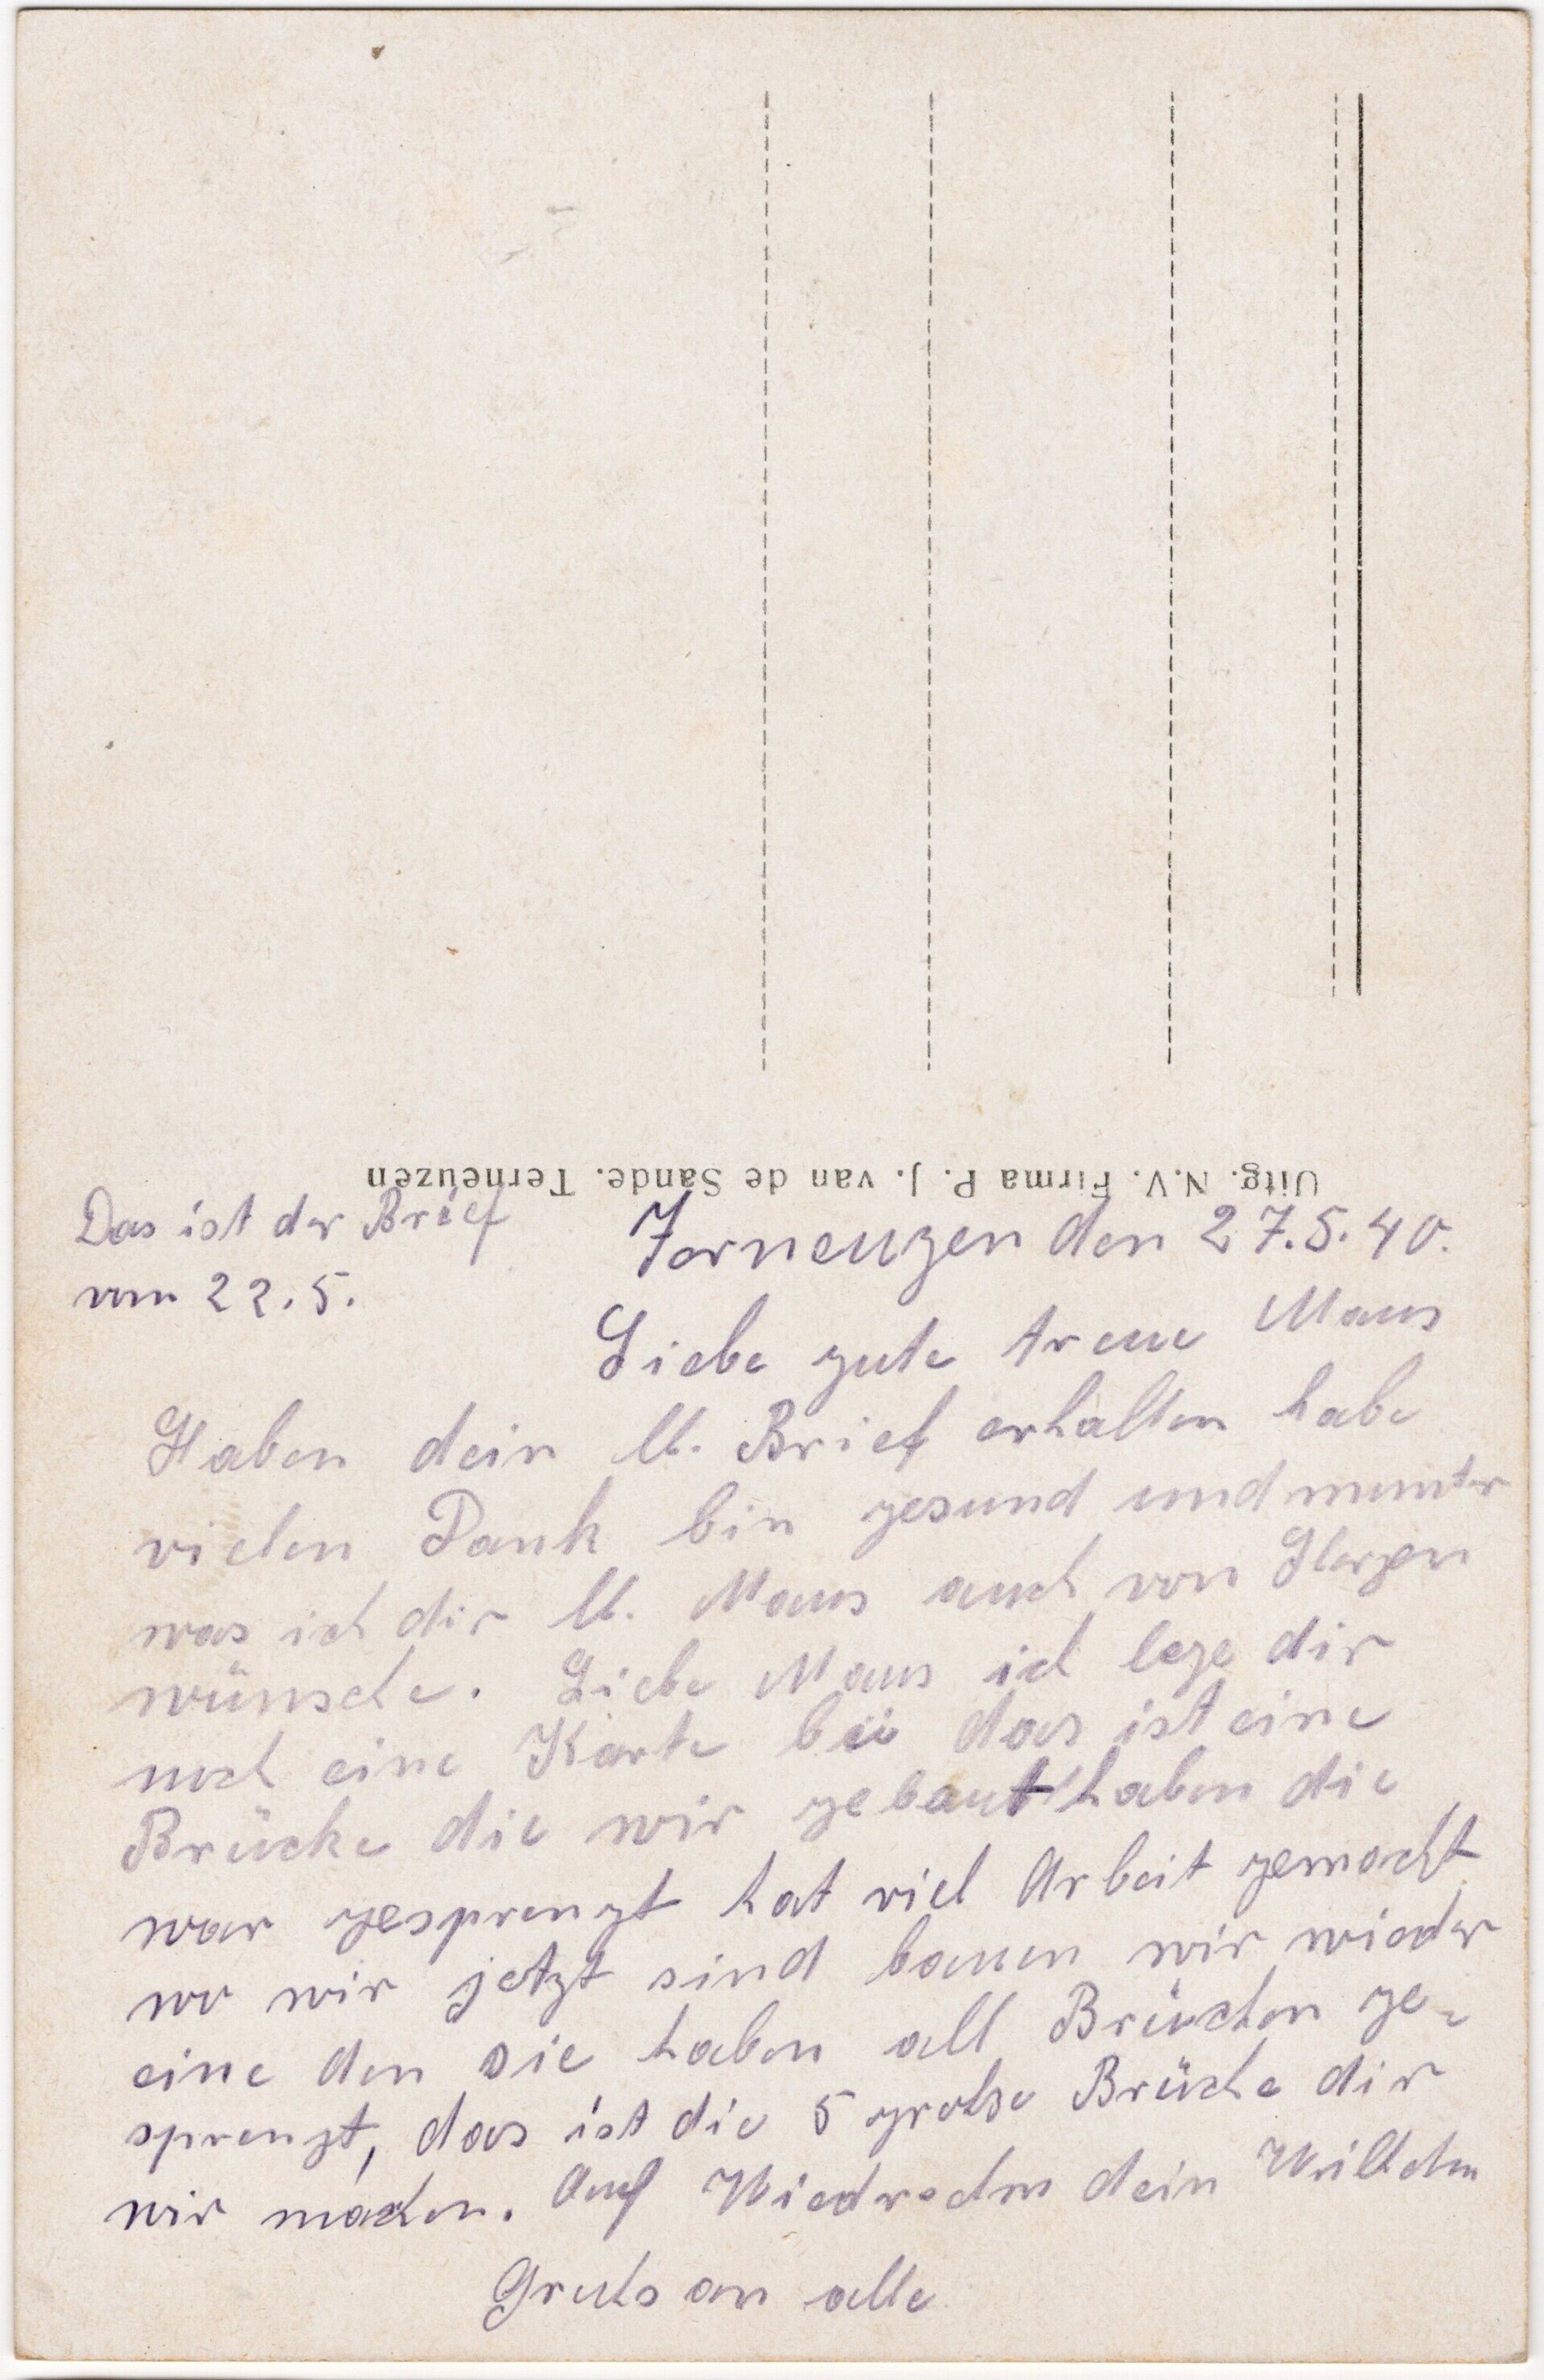 Uitg. N.V. Firma P. J. van de Sande. Terneuzen
Das ist der Brief
vom 22.5.
Terneuzen den 27.5.40.
Liebe gute treue Maus
Haben dein lb. Brief erhalten habe
vielen Dank bin gesund und munter
was ich dir lb. Maus auch von Herzen
wünsche. Liebe Maus ich lege dir
noch eine Karte bei das ist eine
Brücke die wir gebaut haben die
war gesprengt hat viel Arbeit gemacht
wo wir jetzt sind bauen wir wieder
eine den sie haben all Brücken ge-
sprengt, das ist die 5 große Brücke dir
wir machen. Auf Wiedrsehn dein Wilhelm
Gruß an alle